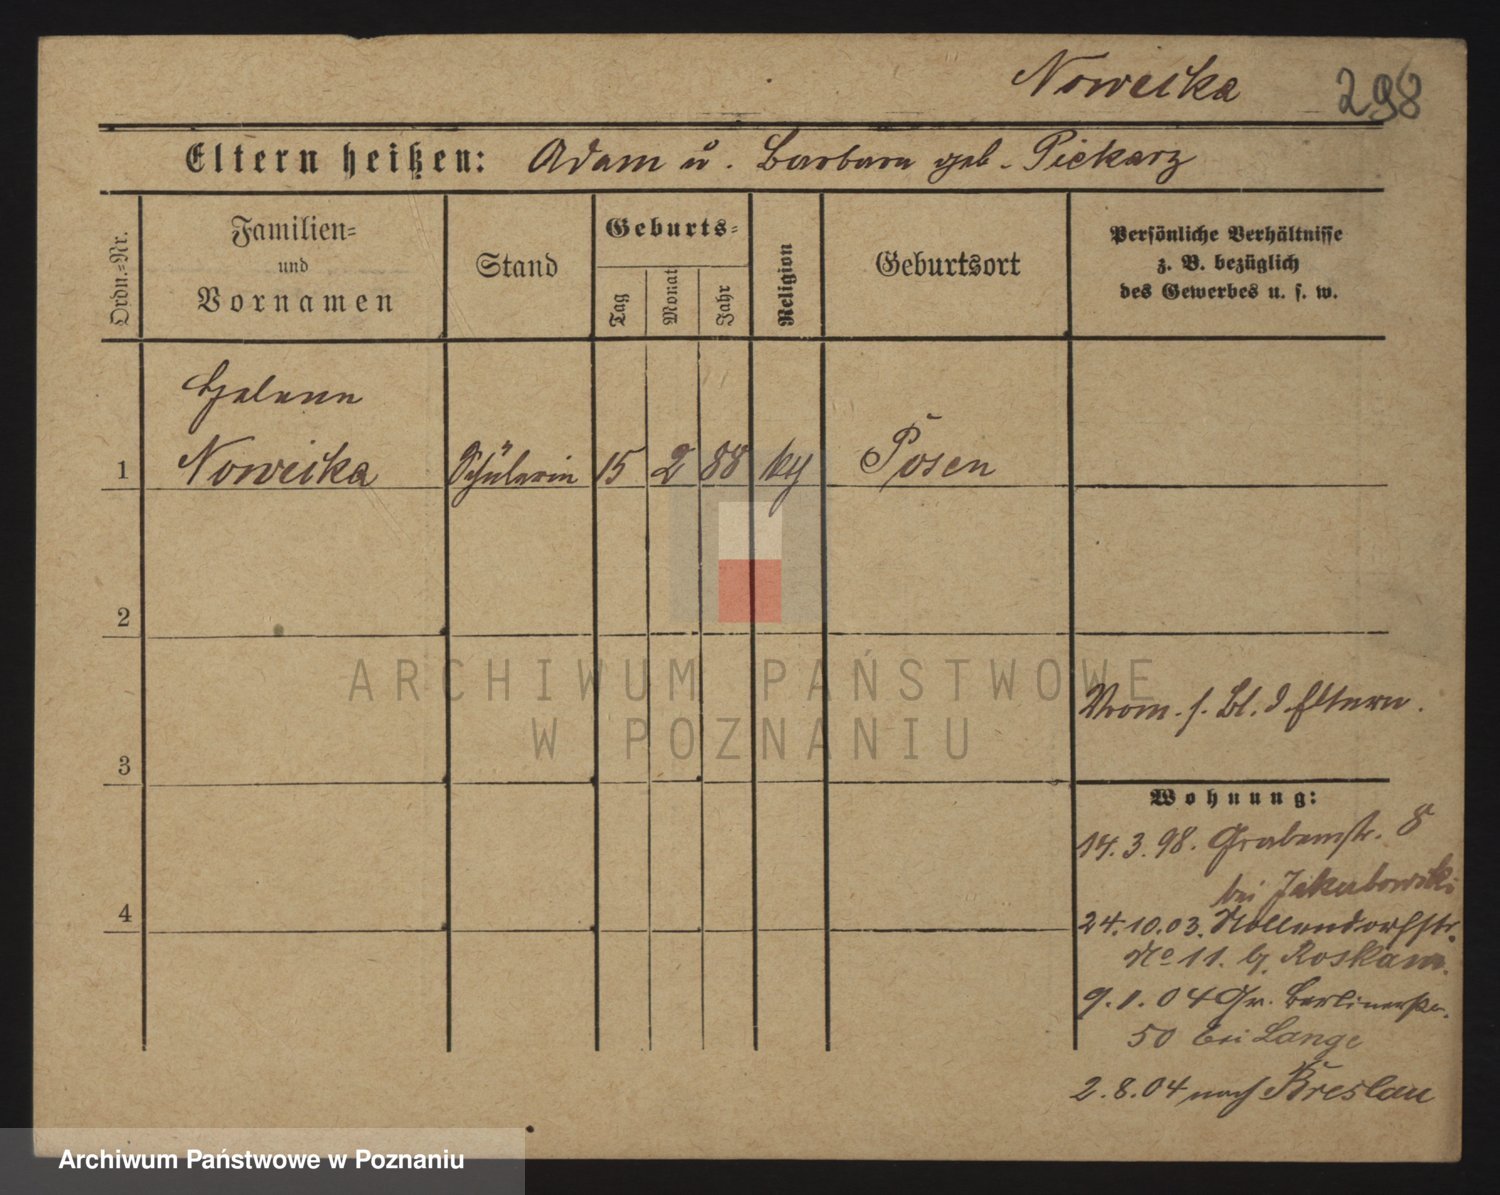 Noweiska 298
Eltern heißen: Adam u. Barbara geb. Piekarz
Ordn.=Nr.
Familien=
und
Vornamen
Stand
Geburts=
Tag
Monat
Jahr
Religion
Geburtsort
Persönliche Verhältnisse
z. B. bezüglich
des Gewerbes u. s. w.
Helene
1 Noweiska Schülerin 15 2 88 kth Posen
2
Vrom. s. Bl. d Eltern.
3
Wohnung:
14.3.98. Grabenstr. 8
bei Jakubowski
4
24.10.03. Nollendorfstr.
No 11. b.
9.1.04 Gr. Berlinerstr.
50 bei Lange
2.8.04 nach Breslau
ARCHIWUM PAŃSTWOWE
W POZNANIU
Archiwum Państwowe w Poznaniu